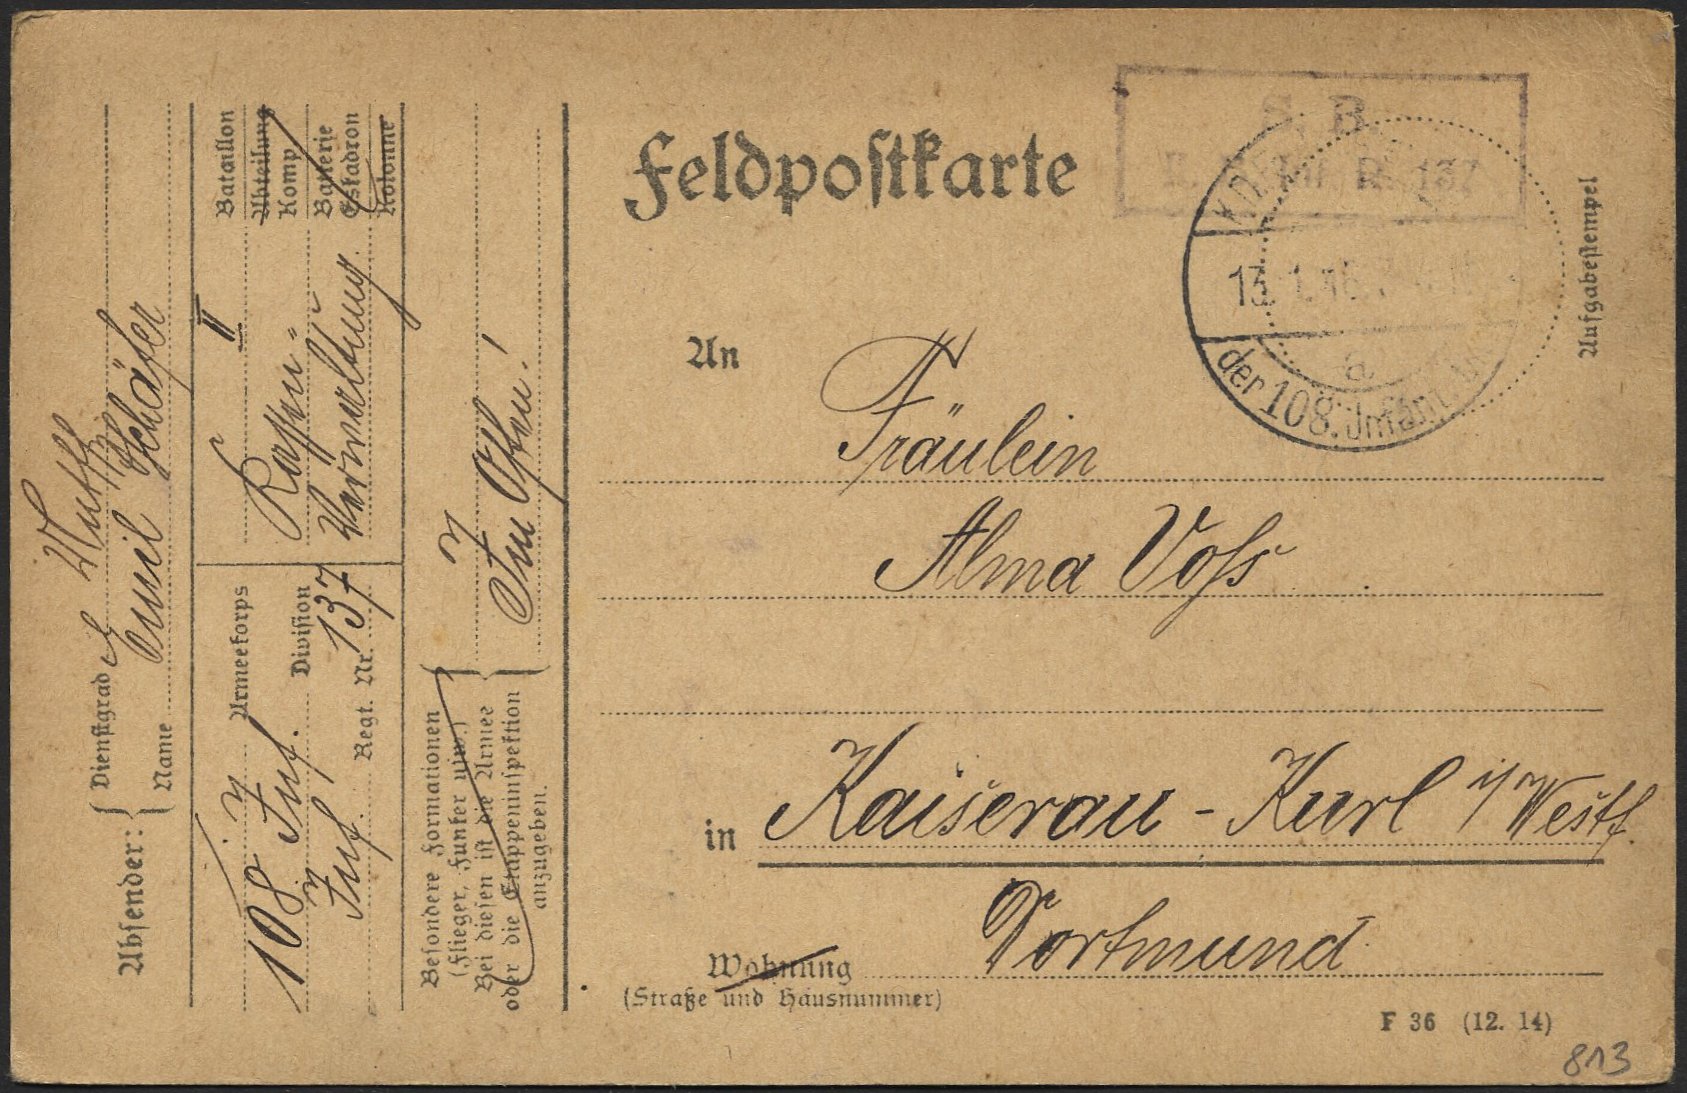 Feldpostkarte
S. B.
R. 137
13. 1. 16.
a
der 108. Infant.
Aufgabestempel
An
Fräulein
Alma Voss
in Kaiserau - Kurl i/Westf.
Wohnung Dortmund
(Straße und Hausnummer)
F 36 (12. 14)
813
Absender:
Dienstgrad
Name Emil Schäfer
108. Inf. Armeekorps
Division
Inf. Regt. Nr. 137
II Bataillon
Abteilung
Kassen- Komp.
Verwaltung Batterie
Eskadron
Kolonne
Besondere Formationen
(Flieger, Funker usw.)
Bei diesen ist die Armee
oder die Etappeninspektion
anzugeben.
Im Osten!